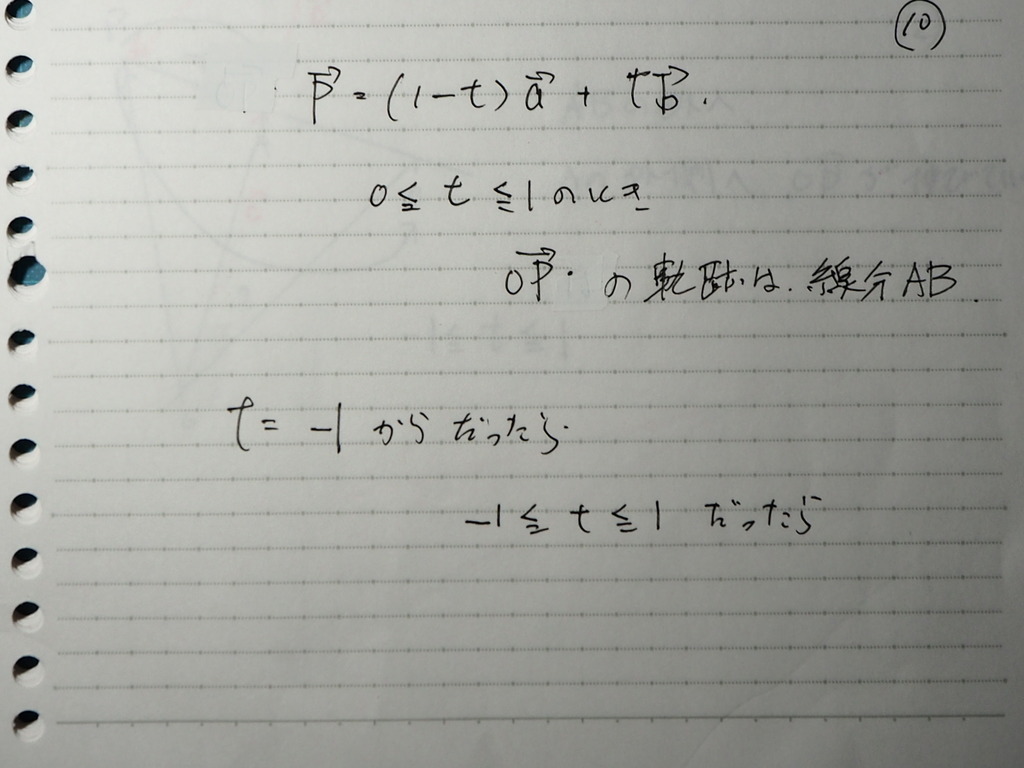 ⑩
p⃗ = (1-t)a⃗ + tb⃗.
0≦t≦1のとき
OP⃗の軌跡は.線分AB.
t=-1からだったら.
-1≦t≦1だったら